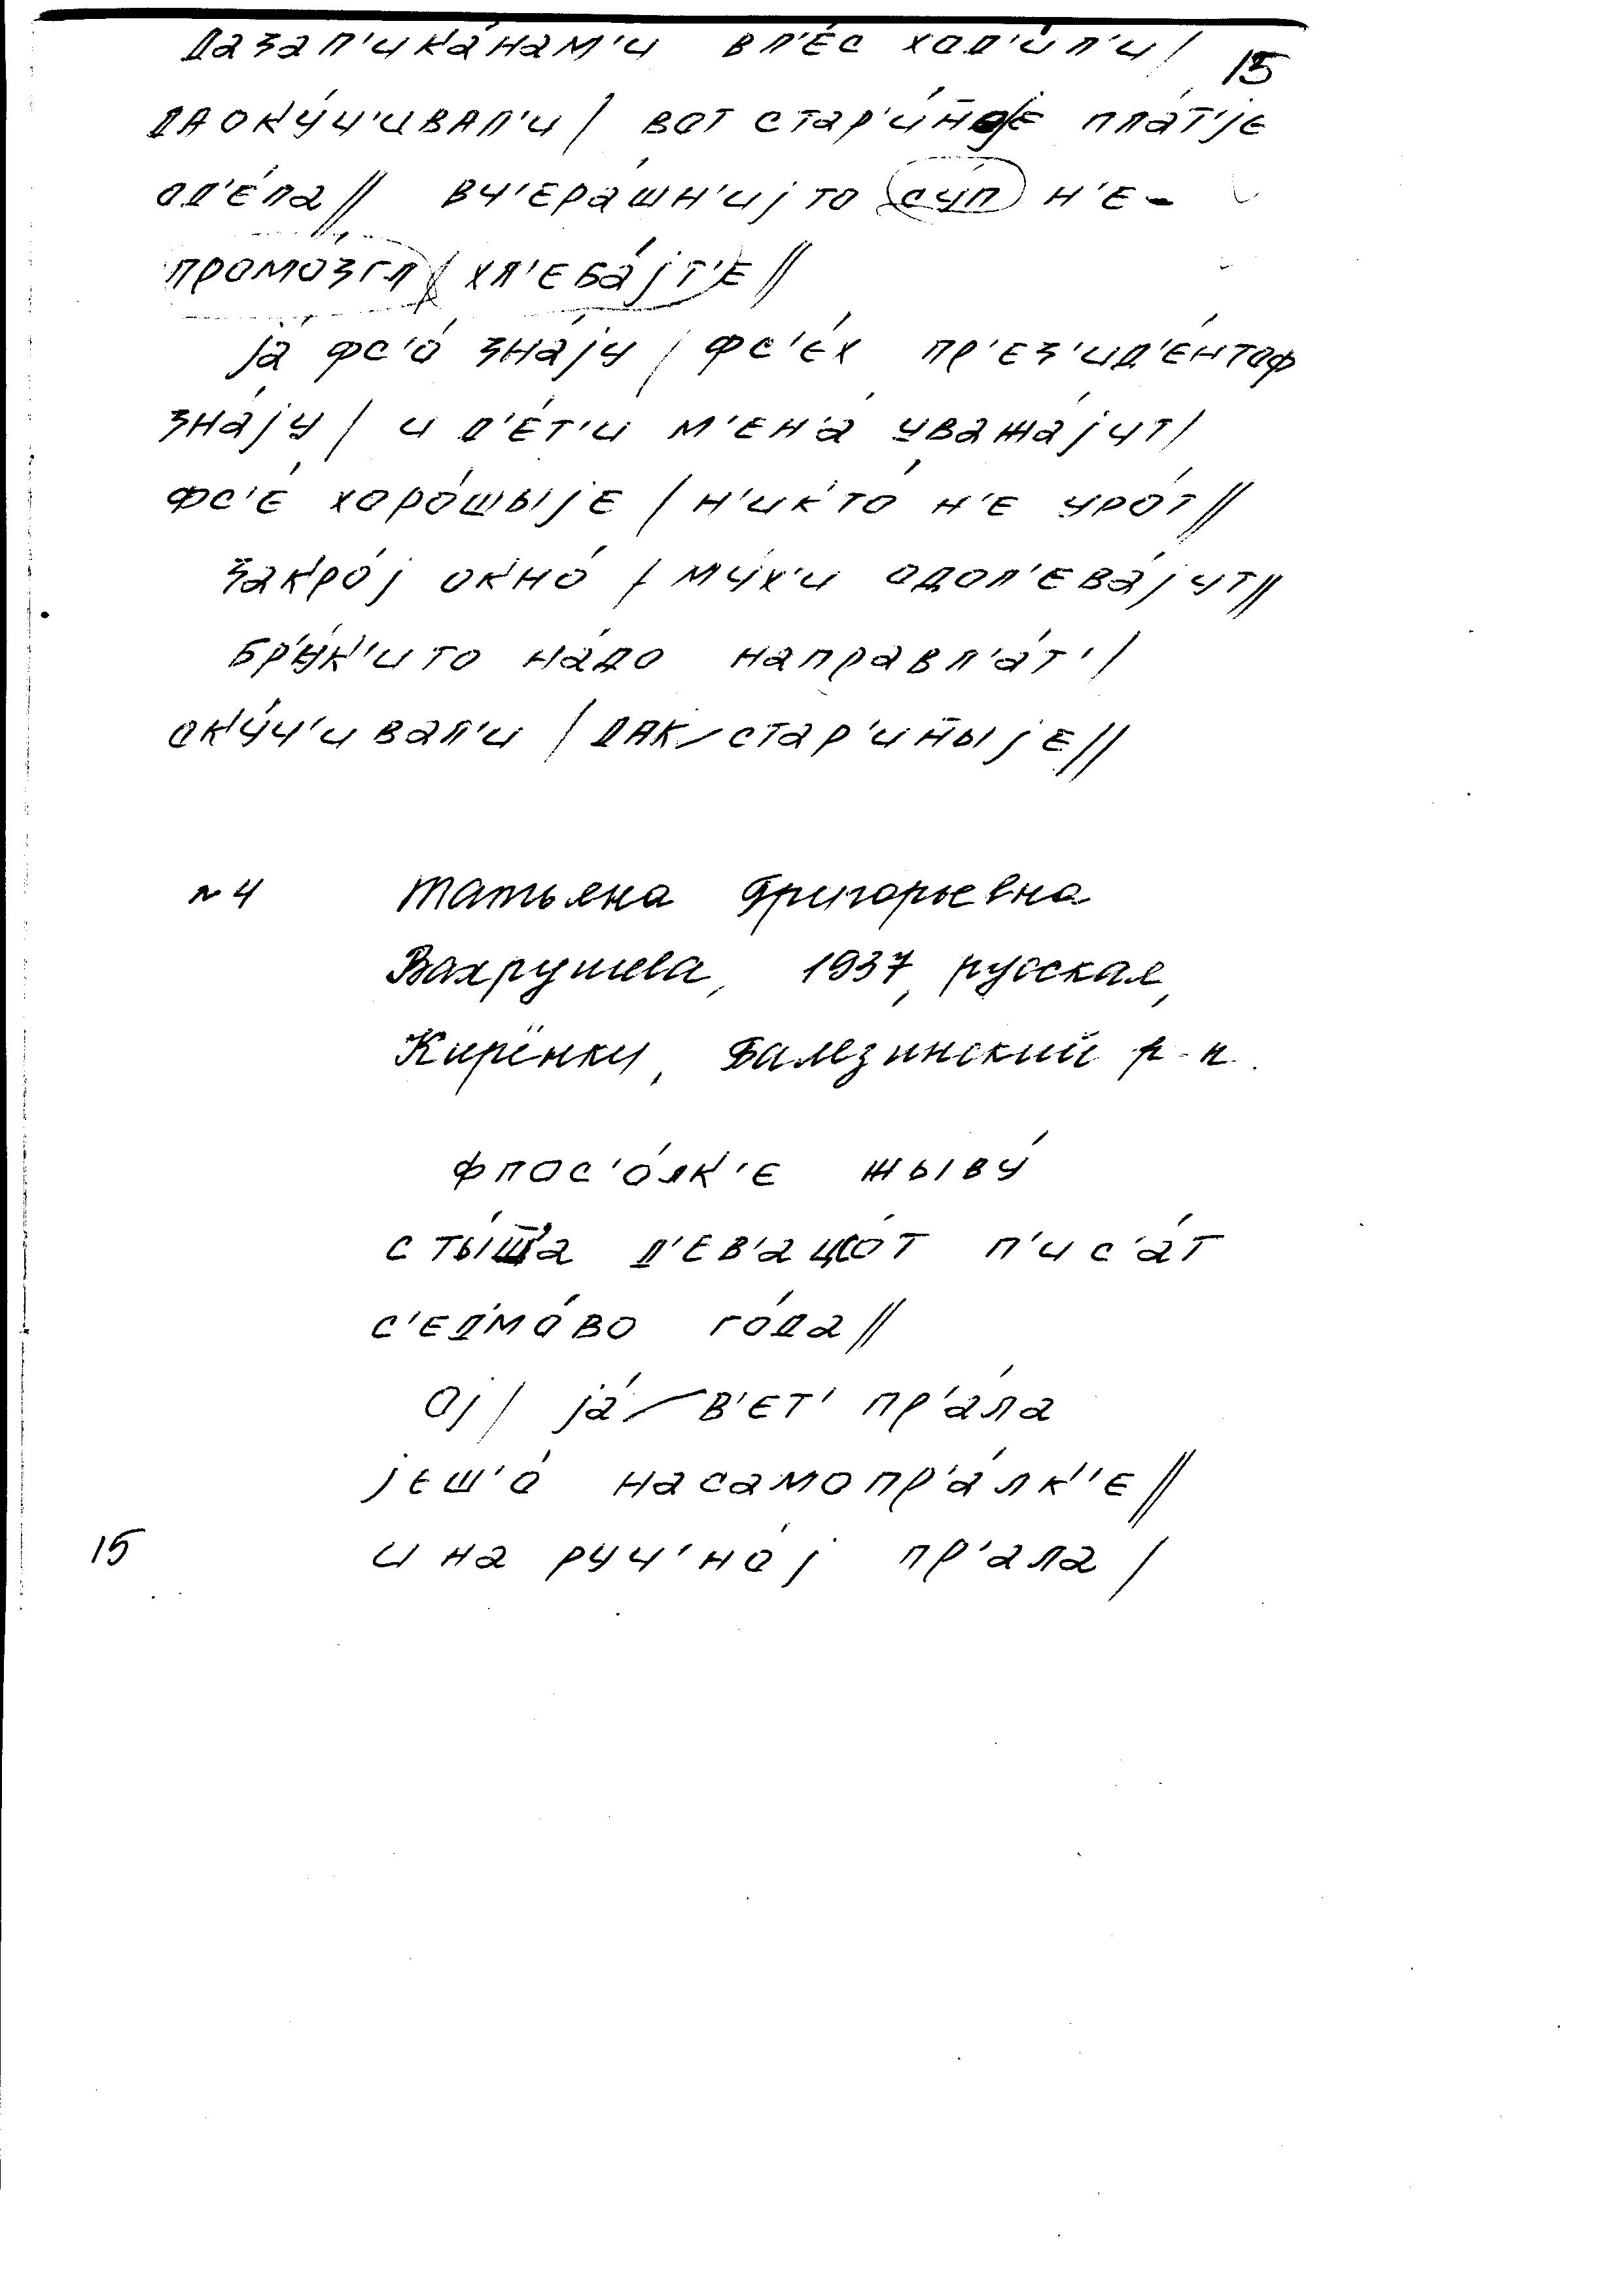 дазап'ика́нам'и вл'е́с ход'и́л'и /
15
даоку́ч'ивал'и / вот стар'и́н̄оjе пла́т'jе
од'е́ла // вч'ера́шн'иj то су́п н'е-
промо́згл / хл'еба́jт'е //
jа́ фс'о́ зна́jу / фс'е́х пр'ез'ид'е́нтоф
зна́jу / и д'е́т'и м'ен'а́ уважа́jут /
фс'е́ хоро́шыjе / н'икто́ н'е уро́т //
закро́j окно́ / му́х'и одол'ева́jут //
бр'у́к'ито на́до направл'а́т' /
оку́ч'ивал'и / дак стар'и́н̄ыjе //
№ 4 Татьяна Григорьевна
Вахрушева, 1937, русская,
Кирёнки, Балезинский р-н.
фпос'о́лк'е жыву́
с ты́ш̄'а д'ев'ацо́т п'ис'а́т
с'едмо́во го́да //
Оj / jа́ в'ет' пр'а́ла
jеш'о́ насамопр'а́лк'е //
15 и на руч'но́j пр'ала /